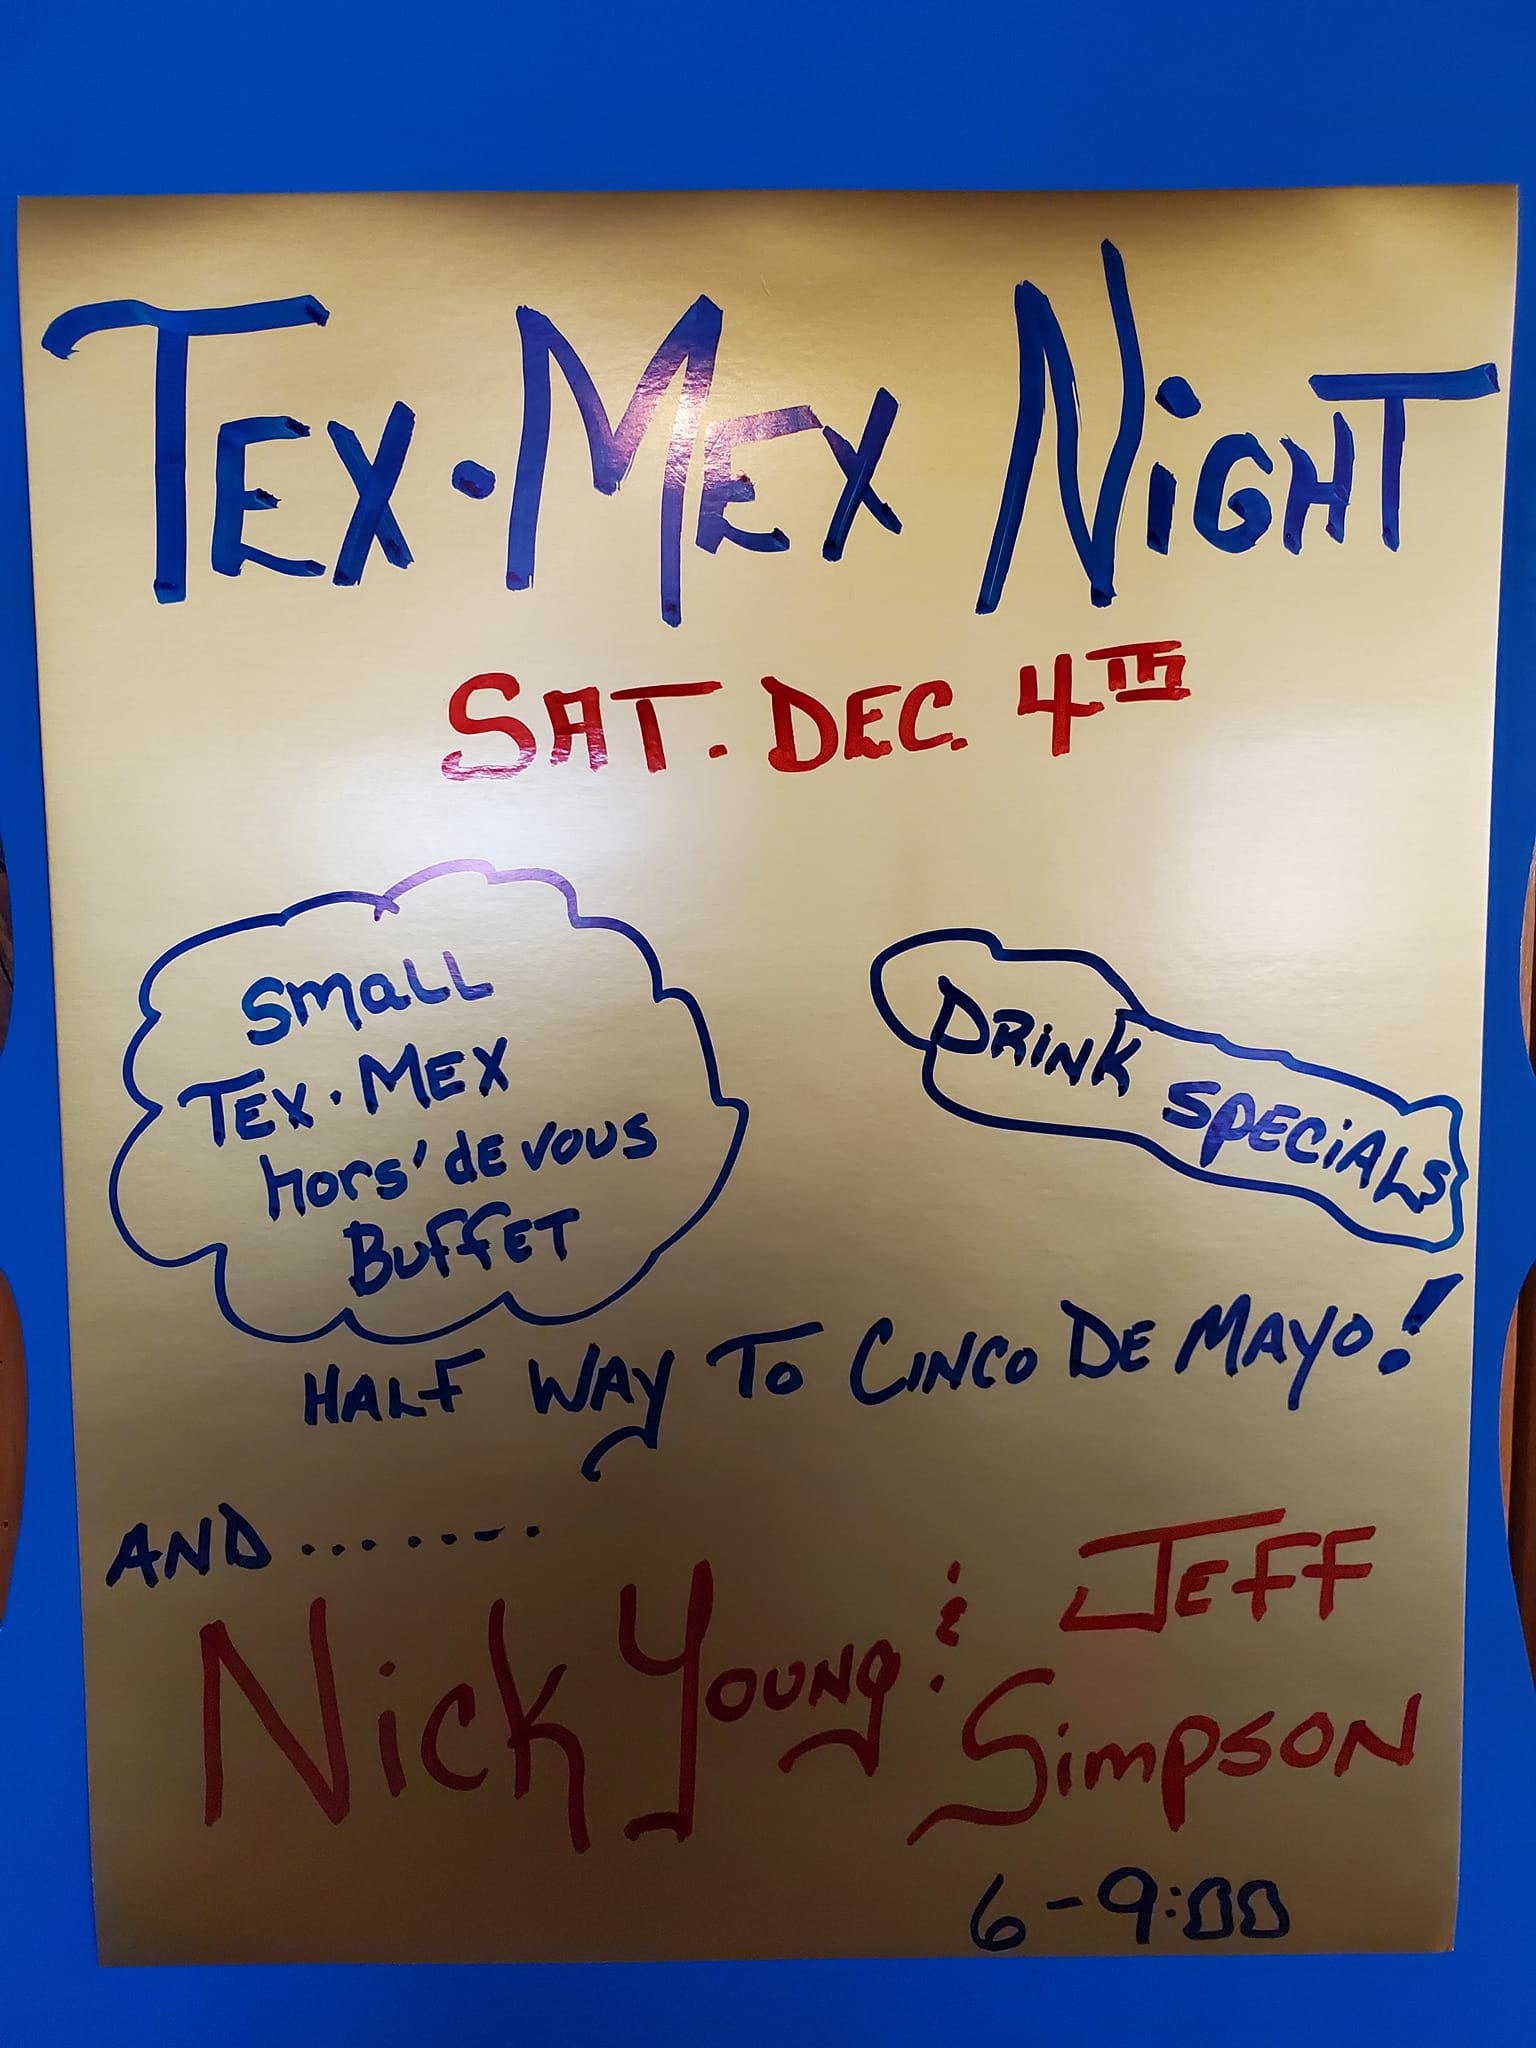 TEX·MEX NiGHT
SAT. DEC. 4TH
SmaLL
TEX·MEX
hors' dE vous
BuffET
DRiNK SPECiALS
HALF WAY TO CINCO DE MAYO!
AND........
Nick YOUNG & JEFF
SimpsoN
6-9:00